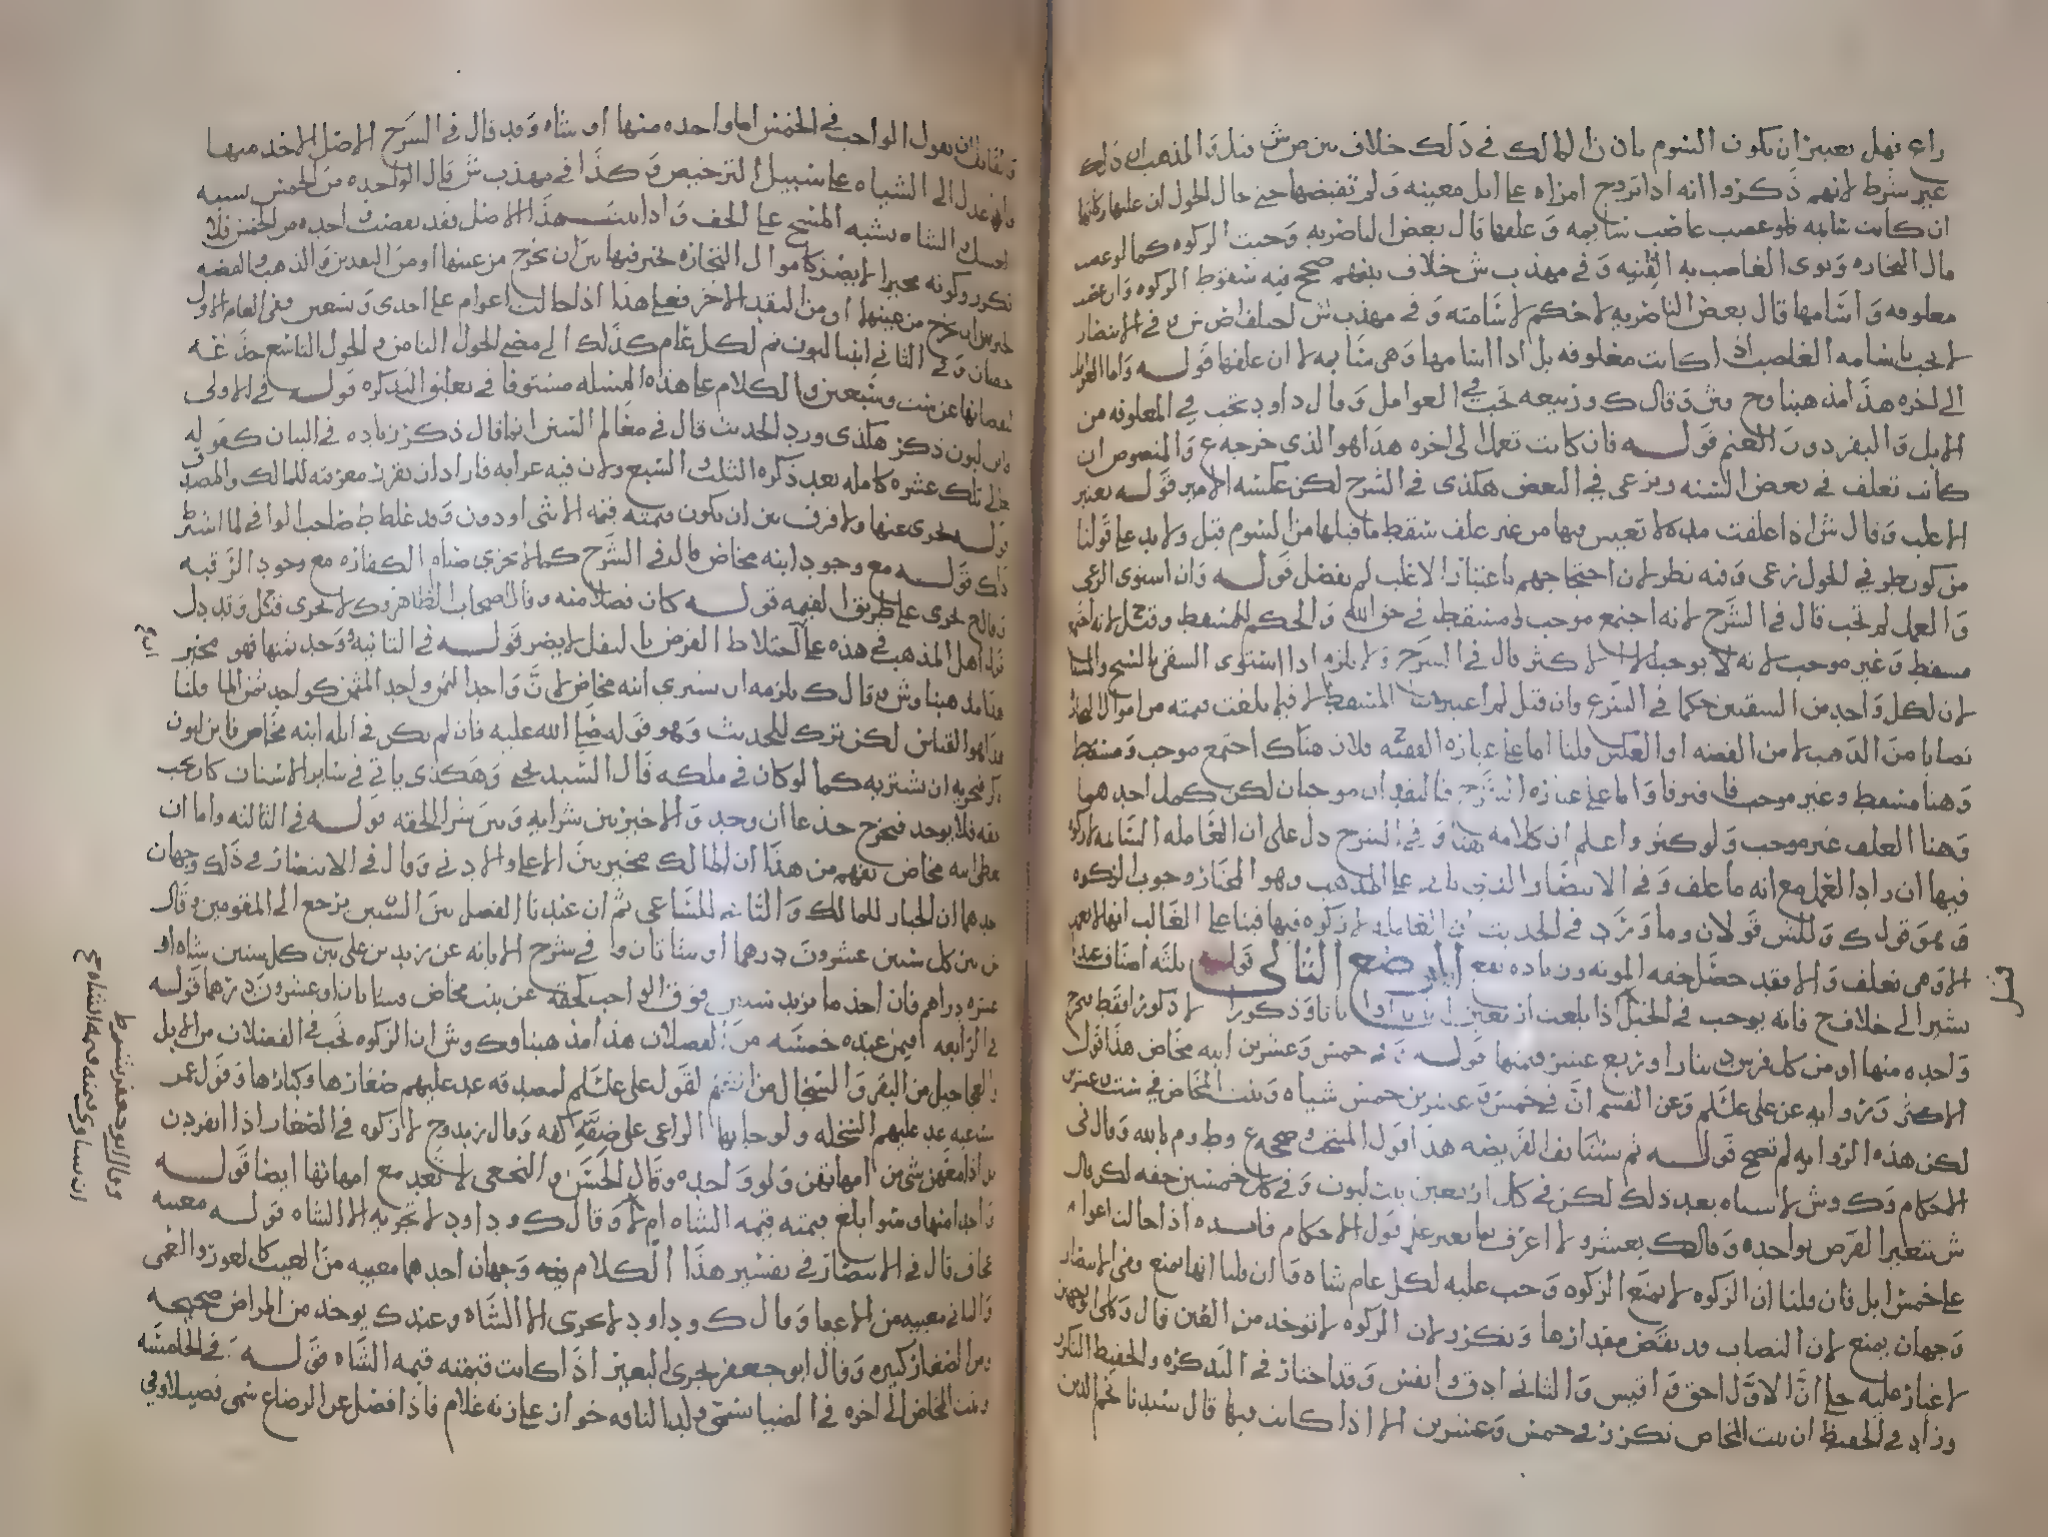 راع فهل يعتبر ان يكون السوم بان المالك في ذلك خلاف بين ض ش قيل والمذهب ان ذلك
غير شرط لانهم ذكروا انه اذا تزوج امراه على ابل معينه ولم تقبضها حتى حال الحول ان عليها زكاتها
ان كانت سايمه فلو غصب غاصب سايمه وعلفها قال بعض الناصريه وجبت الزكوه كما لو غصب
مال التجاره ونوى الغاصب به القنيه وفي مهذب ش خلاف بينهم صحح فيه سقوط الزكوه وان غصب
معلوفه واسامها قال بعض الناصريه لا حكم لاسامته وفي مهذب ش اختلف اض ش في الانتصار
لا تجب باسامه الغاصب اذا كانت معلوفه بل اذا اسامها وهي سايمه لا ان علفها قوله واما العوامل
الى اخره هذا مذهبنا وح وش وقال ك وربيعه تجب في العوامل وقال داود تجب في المعلوفه من
الابل والبقر دون الغنم قوله فان كانت تعمل الى اخره هذا هو الذي خرجه ع والمنصوص ان
كانت تعلف في بعض السنه وترعى في البعض هكذى في الشرح لكن عكسه الامير قوله يعتبر
الاغلب وقال ش اذا علفت مده لا تعيش فيها من غير علف سقط ما قبلها من السوم قيل ولا بد على قولنا
من كون في الحول ترعى وفيه نظر لان احتجاجهم باعتبار الاغلب لم يفصل قوله وان استوى الرعي
والعمل لم تجب قال في الشرح لانه اجتمع موجب ومسقط في حق الله والحكم للمسقط وقيل لانه اجتمع
مسقط وغير موجب لانه لا يوجب الا الاكثر قال في الشرح ولا يلزم اذا استوى السقي بالسيح والسنا
لان لكل واحد من السقيين حكما في الشرع وان قيل لم اعتبرتم المسقط لا فيما بلغت قيمته من اموال التجاره
نصابا من الذهب لا من الفضه او العكس قلنا اما على عباره الفقيه فلان هناك اجتمع موجب ومسقط
وهنا مسقط وغير موجب فافترقا واما على عباره الشرح فالنقدان موجبان لكن كمل احدهما
وهنا العلف غير موجب ولو كثر واعلم ان كلامه هنا وفي الشرح دل على ان العامله السايمه لا زكوه
فيها ان زاد العمل مع انه ما علف وفي الانتصار والذي ياتي على المذهب وهو المختار وجوب الزكوه
وهو قول ك وللش قولان وما ورد في الحديث ان العامله لا زكوه فيها فبنا على الغالب انها لا تعمل
الا وهي تعلف والا فقد حصل خفه المونه وزياده نفع الموضع الثاني قوله ثلثه اصناف عندنا
يشير الى خلاف ح فانه يوجب في الخيل اذا بلغت اناثا وذكورا لا ذكورا فقط فيخرج
واحده منها او من كل فرس دينارا او ربع عشر قيمتها قوله وفي خمس وعشرين ابنه مخاض هذا قول
الاكثر وروايه عن علي علم وعن القسم ان في خمس وعشرين خمس شياه وبنت المخاض في ست وعشرين
لكن هذه الروايه لم تصح قوله ثم تستانف الفريضه هذا قول المنتخب وصححه ع وط وم بالله وقال في
الاحكام وك وش لا شياه بعد ذلك لكن في كل اربعين بنت لبون وفي كل خمسين حقه لكن قال
ش تتغير الفرض بواحده وقال ك بعشر ولا اعرف بما يعتبر على قول الاحكام فايده اذا حالت اعوام
على خمس ابل فان قلنا ان الزكوه لا تمنع الزكوه وجب عليه لكل عام شاه وان قلنا انها تمنع وفي الانتصار
وجهان يمنع لان النصاب قد نقص مقدارها وتكرر لان الزكوه لا توخذ من العين قال وكلى الوجهين
لا غبار عليه خلا ان الاول احق واقيس والثاني ادق وانفس وقد اختار في التذكره والحفيظ التكرر
وزاد في الحفيظ ان بنت المخاض تكرر في خمس وعشرين الا اذا كانت فيها قال سيدنا نجم الدين
قيل
يقول الواجب في الخمس اما واحده منها او شاه وقد قال في الشرح الاصل الاخذ منها
وانما عدل الى الشياه على سبيل الترخيص وكذا في مهذب ش قال الواحده من الخمس
الشاه يشبه المسح على الخف واذا ثبت هذا الاصل فقد نقصت واحده من الخمس فلا
تكرر وكونه مخيرا لا يضر كاموال التجاره تخير فيها بين ان يخرج من عينها او من النقدين والذهب والفضه
ان يخرج من عينها او من النقد الاخر فعلى هذا اذا حالت اعوام على احدى وتسعين ففي العام الاول
حقتان وفي الثاني ابنتا لبون ثم لكل عام كذلك الى مضي الحول الثامن وفي الحول التاسع جذعه
لنقصانها عن ست وسبعين والكلام على هذه المسئله مستوفا في تعليق التذكره قوله في الاولى
وابن لبون ذكر هكذى ورد الحديث قال في معالم السنن انما قال ذكر زياده في البيان كقوله
تعالى تلك عشره كامله بعد ذكره الثلث والسبع ولان فيه غرابه فاراد ان تقرر معرفته للمالك والمصدق
قوله يجزى عنها ولا فرق بين ان يكون قيمته قيمه الانثى او دون وقد غلط ط صاحب الوافي لما اشترط
ذلك قوله مع وجود ابنه مخاض قال في الشرح كما لا يجزي صيام الكفاره مع وجود الرقبه
وقال ح يجزى على طريق القيمه قوله كان فضلا منه وقال اصحاب الظاهر وك لا يجزى قيل وقد دل
قول اهل المذهب في هذه على اختلاط الفرض بالنفل لا يضر قوله في الثانيه ووجد ثمنها فهو مخير
هذا مذهبنا وش وقال ك يلزمه ان يشتري ابنه مخاض لان واجد الثمن واجد المثمن كواجد ثمن الما قلنا
هذا هو القياس لكن ترك للحديث وهو قوله صلى الله عليه فان لم يكن في ابله ابنه مخاض فابن لبون
ذكر فيجزيه ان يشتريه كما لو كان في ملكه قال السيد يحيى وهكذى ياتي في ساير الاسنان كان يجب
حقه فلا يوجد فيخرج جذعا ان وجد والا خير بين شرايه وبين شرا الحقه قوله في الثالثه واما ان
يعطي ابنه مخاض يفهم من هذا ان المالك مخير بين الاعلى والادنى وقال في الانتصار في ذلك وجهان
احدهما ان الخيار للمالك والثاني للساعي ثم ان عندنا الفضل بين السنين يرجع الى المقومين وقال
ش بين كل سنين عشرون درهما او شاتان وفي شرح الابانه عن زيد بن علي بين كل سنين شاه او
عشره دراهم فان اخذ ما يزيد سنين فوق الواجب كحقه عن بنت مخاض فشاتان او عشرون درهما قوله
في الرابعه فيمن عنده خمسه من الفصلان هذا مذهبنا وك وش ان الزكوه تجب في الفصلان من الابل
والعجاجيل من البقر والسخال من الغنم لقول علي علم لمصدقه عد عليهم صغارها وكبارها وقول عمر
عد عليهم السخله ولو جا بها الراعي على ضفه كفه وقال زيد وح لا زكوه في الصغار اذا انفردن
بل اذا معهن شي من امهاتهن ولو واحده وقال الحسن والنخعي لا تعد مع امهاتها ايضا قوله
واحدا منها وسوا بلغ قيمته قيمه الشاه ام لا وقال ك ود اود لا تجزيه الا الشاه قوله معيبه
عجاف قال في الانتصار في تفسير هذا الكلام فيه وجهان احدهما معيبه من العيب كالعور والعمى
والثاني معييه من الاعيا وقال ك ود اود لا يجزى الا الشاه وعند ك يوخذ من المراض صحيحه
ومن الصغار كبيره وقال ابو جعفر يجزى البعير اذا كانت قيمته قيمه الشاه قوله في الخامسه
وبنت المخاض الى اخره في الضيا يسمى ولد الناقه حوار على زنه غلام فاذا فصل عن الرضاع سمى فصيلا وفي
وقال ابو جعفر بشرط
ان تساوي قيمته قيمه الشاه ح